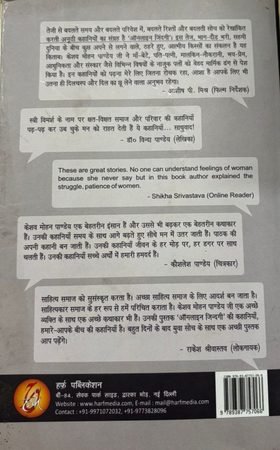 तेजी से बदलते समय और बदलते परिवेश में, बदलते रिश्तों और बदलती सोच को रेखांकित
करती अनूठी कहानियों का संग्रह है 'ऑनलाइन जिंदगी'। इस तेज, भाग-दौड़ भरी, सहमी
दुनिया के बीच कुछ अपने से लगने वाले, ठहरे हुए, आत्मीय किस्सों का संकलन है यह
किताब। केशव मोहन पाण्डेय जी ने माँ-बेटे, पति-पत्नी, मालकिन-नौकरानी, भय-प्रेम,
आधुनिकता और संस्कार जैसे विभिन्न विषयों के नाजुक पलों को बेहद मार्मिक ढंग से पेश
किया है। इन कहानियों को पढ़ना मेरे लिए जितना रोचक रहा, आशा है आपके लिए भी
उतना ही दिलचस्प और दिल को छू लेने वाला अनुभव रहेगा।
- अजीम पी. मिश्र (फिल्म निर्देशक)
स्त्री विमर्श के नाम पर क्षत-विक्षत समाज और परिवार की कहानियाँ
पढ़-पढ़ कर उब चुके मन को राहत देती हैं ये कहानियाँ.... साधुवाद!
- डॉ० विन्दा पाण्डेय (लेखिका)
These are great stories. No one can understand feelings of woman
because she never say but in this book author explained the
struggle, patience of women.
- Shikha Srivastava (Online Reader)
केशव मोहन पाण्डेय एक बेहतरीन इंसान हैं और उससे भी बढ़कर एक बेहतरीन कथाकार
हैं। उनकी कहानियाँ समय के साथ आगे बढ़ते हुए सीधे मन में उतर जाती हैं। पाठक की
अपनी कहानी बन जाती हैं। उनकी कहानियाँ जीवन के हर मोड़ पर, हर डगर पर साथ
चलती हैं। उनकी कहानियाँ सच्चे अर्थों में हमारी हमदर्द हैं।
- कौशलेश पाण्डेय (चित्रकार)
साहित्य समाज को सुसंस्कृत करता है। अच्छा साहित्य समाज के लिए आदर्श बन जाता है।
साहित्यकार समाज के हर रूप से हमें परिचित कराता है। केशव मोहन पाण्डेय जी एक अच्छे
व्यक्ति के साथ एक अच्छे कथाकार भी हैं। उनकी पुस्तक 'ऑनलाइन जिन्दगी' की कहानियाँ,
हमारे-आपके बीच की कहानियाँ हैं। बहुत दिनों के बाद युवा सोच के साथ एक अच्छी पुस्तक
आप पढ़ेंगे।
- राकेश श्रीवास्तव (लोकगायक)
हर्फ पब्लिकेशन
बी-84, सेवक पार्क साइड, द्वारका मोड़, नई दिल्ली
Website : www.harfmedia.com, E-mail : mail@harfmedia.com
Contact : +91-9971072032, +91-9773828096
9 789387 757066